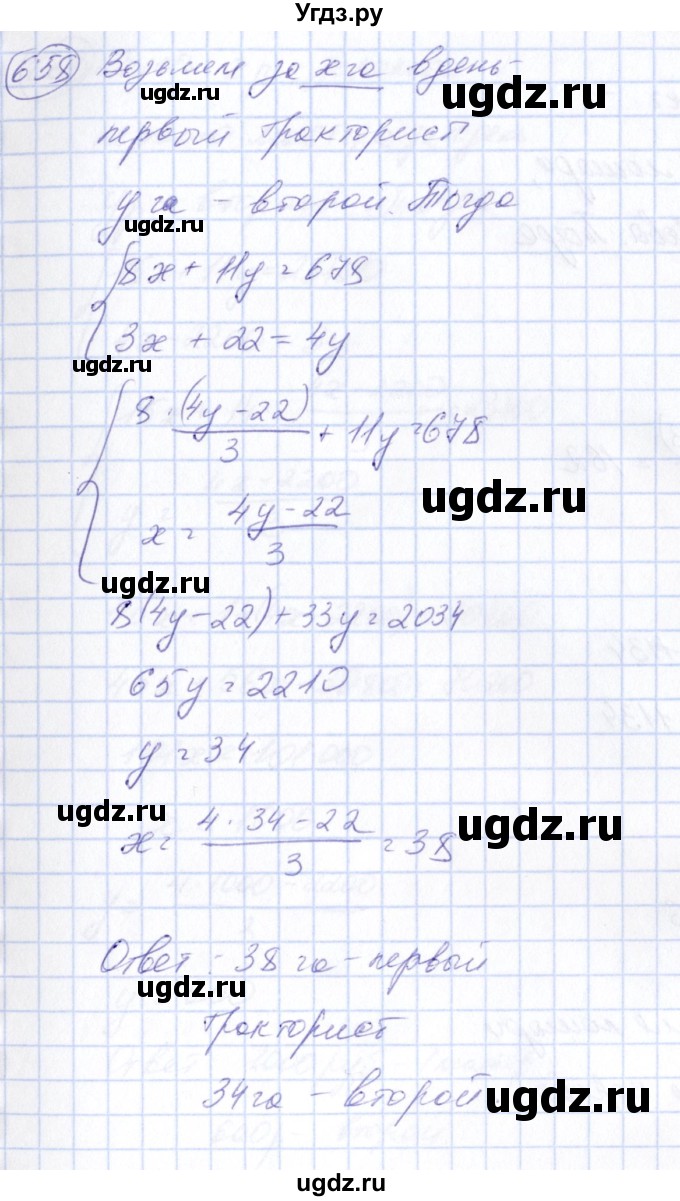 Угдз.ру
658 Возьмем за x га в день -
ugdz.ru ugdz.ru
первый тракторист
y га - второй. Тогда
ugdz.ru
8x + 11y = 678
3x + 22 = 4y
ugdz.ru
8·(4y-22)/3 + 11y = 678
ugdz.ru
x = (4y-22)/3
ugdz.ru
8(4y-22)+33y=2034
65y=2210
y=34
ugdz.ru ugdz.ru
x = (4·34-22)/3 = 38
Ответ: 38 га - первый
ugdz.ru
тракторист
34 га - второй
ugdz.ru
ugdz.ru